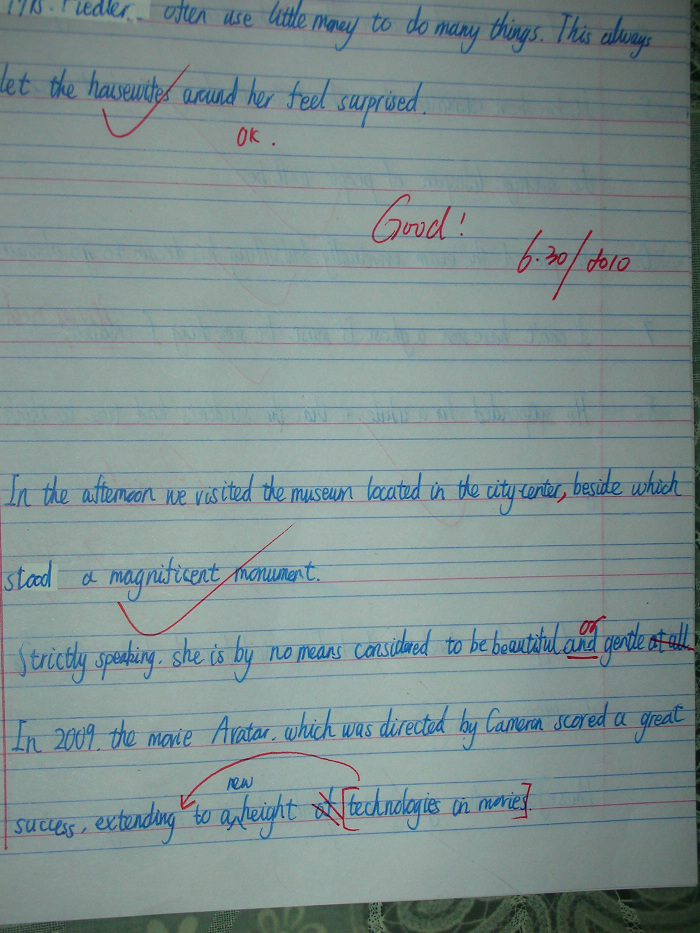 Mrs. Fiedler. often use little money to do many things. This always
let the housewifes around her feel surprised.
OK.
Good!
6.30/2010
In the afternoon we visited the museum located in the city-center, beside which
stood a magnificent monument.
or
Strictly speaking. she is by no means considered to be beautiful and gentle at all.
In 2009. the movie Avatar. which was directed by Cameron scored a great
new
success, extending to a height of [technologies in movies].